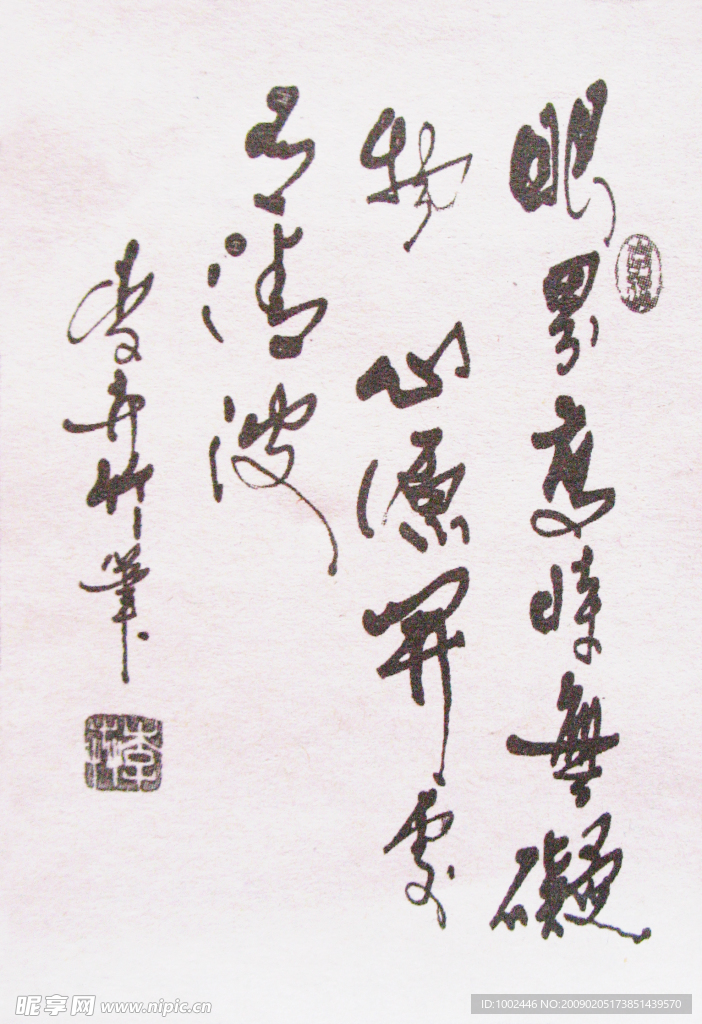 眼界時無礙
物心源開處
有清波
竹筆
昵享网 www.nipic.cn
ID:1002446 NO:20090205173851439570